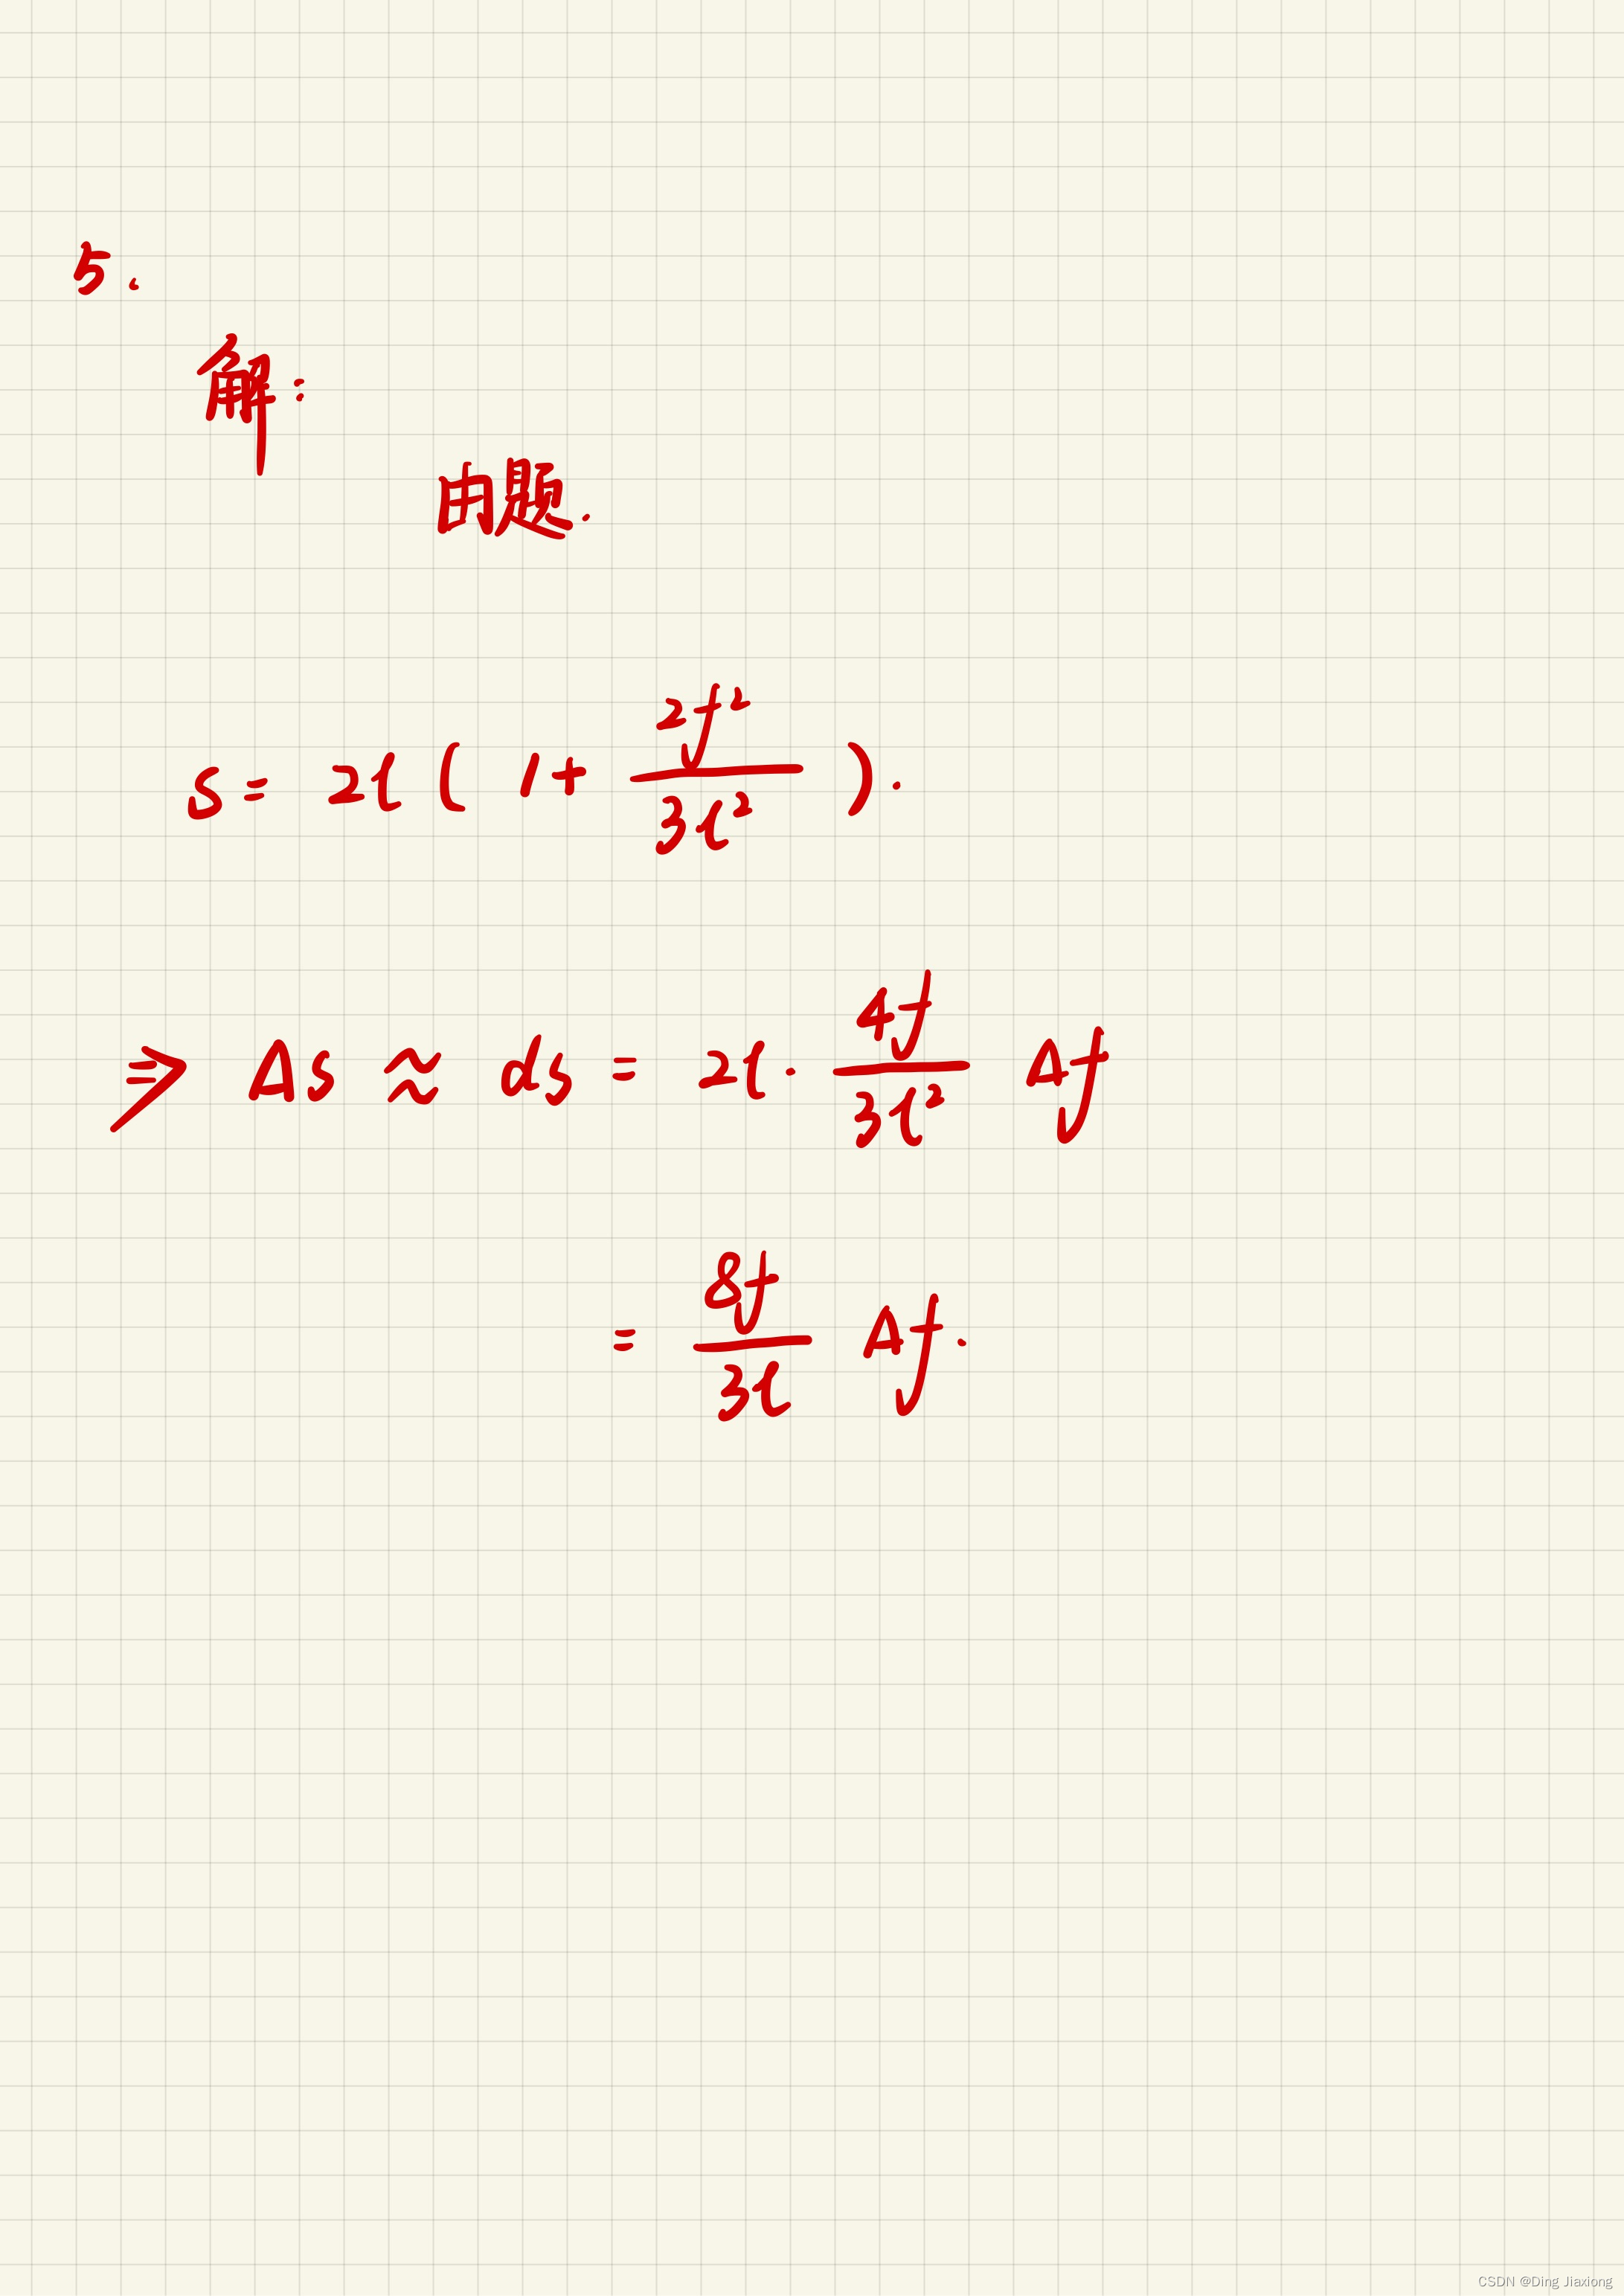 5.
解：
由题.
s = 2l ( 1 + \frac{2f^2}{3l^2} ).
⇒ Δs ≈ ds = 2l · \frac{4f}{3l^2} Δf
= \frac{8f}{3l} Δf.
CSDN @Ding Jiaxiong